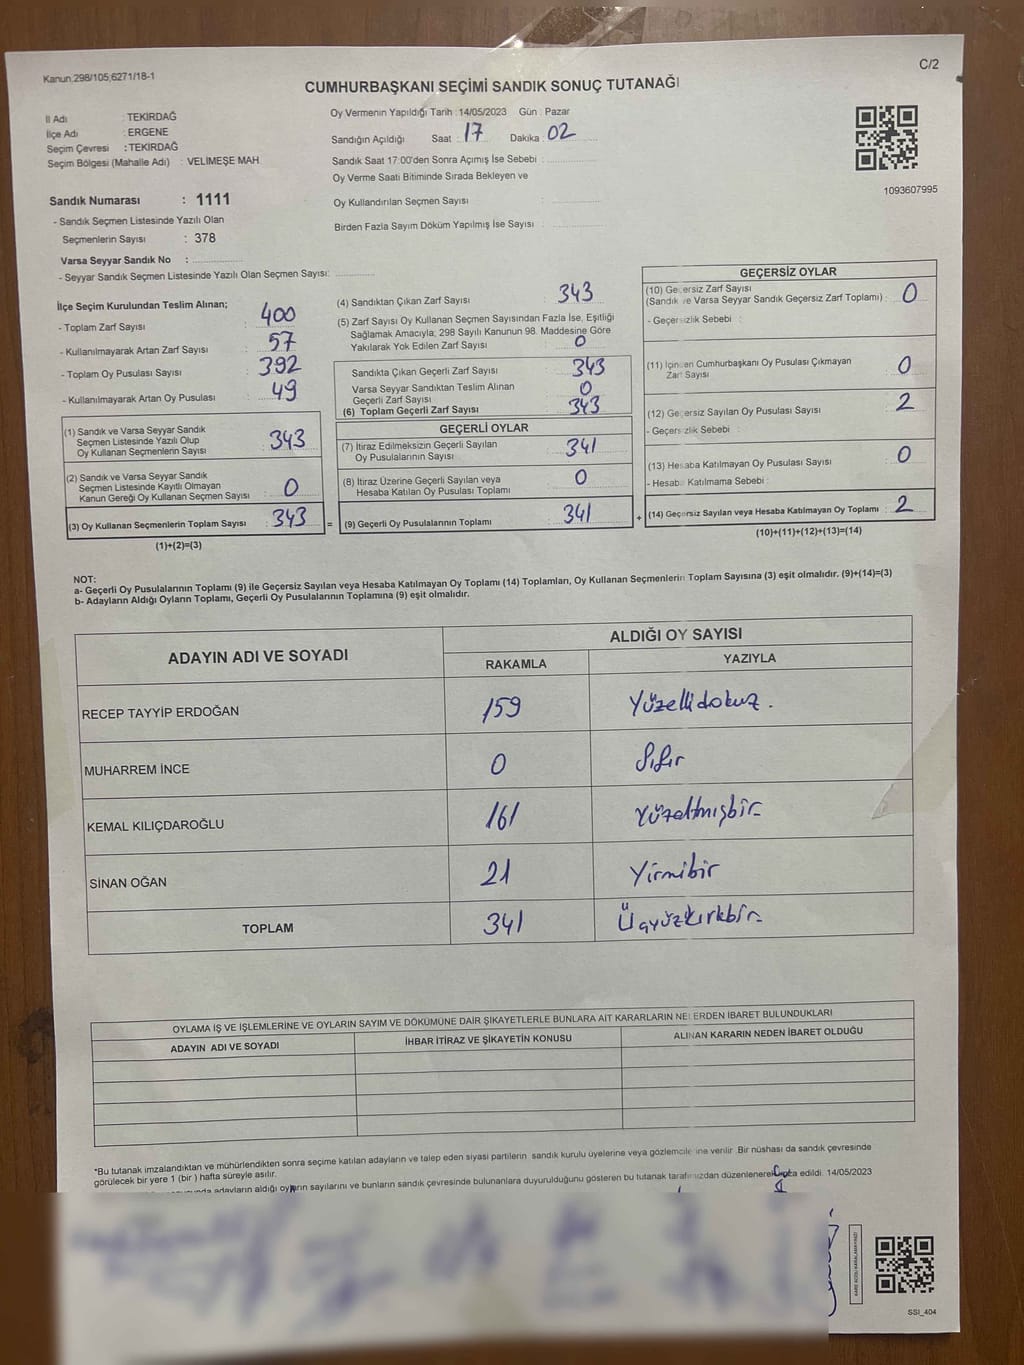 Kanun;298/105;6271/18-1
C/2
CUMHURBAŞKANI SEÇİMİ SANDIK SONUÇ TUTANAĞI
İl Adı : TEKİRDAĞ
İlçe Adı : ERGENE
Seçim Çevresi : TEKİRDAĞ
Seçim Bölgesi (Mahalle Adı) : VELİMEŞE MAH
Oy Vermenin Yapıldığı Tarih : 14/05/2023 Gün : Pazar
Sandığın Açıldığı Saat : 17 Dakika : 02
Sandık Saat 17:00'den Sonra Açımış İse Sebebi :
Oy Verme Saati Bitiminde Sırada Bekleyen ve
Oy Kullandırılan Seçmen Sayısı :
Birden Fazla Sayım Döküm Yapılmış İse Sayısı :
1093607995
Sandık Numarası : 1111
- Sandık Seçmen Listesinde Yazılı Olan
Seçmenlerin Sayısı : 378
Varsa Seyyar Sandık No :
- Seyyar Sandık Seçmen Listesinde Yazılı Olan Seçmen Sayısı:
İlçe Seçim Kurulundan Teslim Alınan;
- Toplam Zarf Sayısı : 400
- Kullanılmayarak Artan Zarf Sayısı : 57
- Toplam Oy Pusulası Sayısı : 392
- Kullanılmayarak Artan Oy Pusulası : 49
(1) Sandık ve Varsa Seyyar Sandık
Seçmen Listesinde Yazılı Olup
Oy Kullanan Seçmenlerin Sayısı : 343
(2) Sandık ve Varsa Seyyar Sandık
Seçmen Listesinde Kayıtlı Olmayan
Kanun Gereği Oy Kullanan Seçmen Sayısı : 0
(3) Oy Kullanan Seçmenlerin Toplam Sayısı : 343
(1)+(2)=(3)
=
(4) Sandıktan Çıkan Zarf Sayısı : 343
(5) Zarf Sayısı Oy Kullanan Seçmen Sayısından Fazla İse, Eşitliği
Sağlamak Amacıyla; 298 Sayılı Kanunun 98. Maddesine Göre
Yakılarak Yok Edilen Zarf Sayısı : 0
Sandıkta Çıkan Geçerli Zarf Sayısı : 343
Varsa Seyyar Sandıktan Teslim Alınan
Geçerli Zarf Sayısı : 0
(6) Toplam Geçerli Zarf Sayısı : 343
GEÇERLİ OYLAR
(7) İtiraz Edilmeksizin Geçerli Sayılan
Oy Pusulalarının Sayısı : 341
(8) İtiraz Üzerine Geçerli Sayılan veya
Hesaba Katılan Oy Pusulası Toplamı : 0
(9) Geçerli Oy Pusulalarının Toplamı : 341
+
GEÇERSİZ OYLAR
(10) Geçersiz Zarf Sayısı
(Sandık ve Varsa Seyyar Sandık Geçersiz Zarf Toplamı) : 0
- Geçersizlik Sebebi :
(11) İçinden Cumhurbaşkanı Oy Pusulası Çıkmayan
Zarf Sayısı : 0
(12) Geçersiz Sayılan Oy Pusulası Sayısı : 2
- Geçersizlik Sebebi :
(13) Hesaba Katılmayan Oy Pusulası Sayısı : 0
- Hesaba Katılmama Sebebi :
(14) Geçersiz Sayılan veya Hesaba Katılmayan Oy Toplamı : 2
(10)+(11)+(12)+(13)=(14)
NOT:
a- Geçerli Oy Pusulalarının Toplamı (9) ile Geçersiz Sayılan veya Hesaba Katılmayan Oy Toplamı (14) Toplamları, Oy Kullanan Seçmenlerin Toplam Sayısına (3) eşit olmalıdır. (9)+(14)=(3)
b- Adayların Aldığı Oyların Toplamı, Geçerli Oy Pusulalarının Toplamına (9) eşit olmalıdır.
ADAYIN ADI VE SOYADI
ALDIĞI OY SAYISI
RAKAMLA YAZIYLA
RECEP TAYYİP ERDOĞAN 159 Yüzellidokuz.
MUHARREM İNCE 0 Sıfır
KEMAL KILIÇDAROĞLU 161 Yüzaltmışbir
SİNAN OĞAN 21 Yirmibir
TOPLAM 341 Üçyüzkırkbir
OYLAMA İŞ VE İŞLEMLERİNE VE OYLARIN SAYIM VE DÖKÜMÜNE DAİR ŞİKAYETLERLE BUNLARA AİT KARARLARIN NELERDEN İBARET BULUNDUKLARI
ADAYIN ADI VE SOYADI İHBAR İTİRAZ VE ŞİKAYETİN KONUSU ALINAN KARARIN NEDEN İBARET OLDUĞU
*Bu tutanak imzalandıktan ve mühürlendikten sonra seçime katılan adayların ve talep eden siyasi partilerin sandık kurulu üyelerine veya gözlemcilerine verilir. Bir nüshası da sandık çevresinde
görülecek bir yere 1 (bir) hafta süreyle asılır.
adayların aldığı oyların sayılarını ve bunların sandık çevresinde bulunanlara duyurulduğunu gösteren bu tutanak tarafımızdan düzenlenerek imza edildi. 14/05/2023
SSI_404